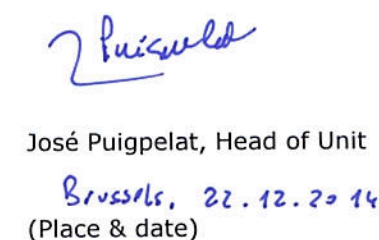 Puigpelat
José Puigpelat, Head of Unit
Brussels, 22.12.2014
(Place & date)